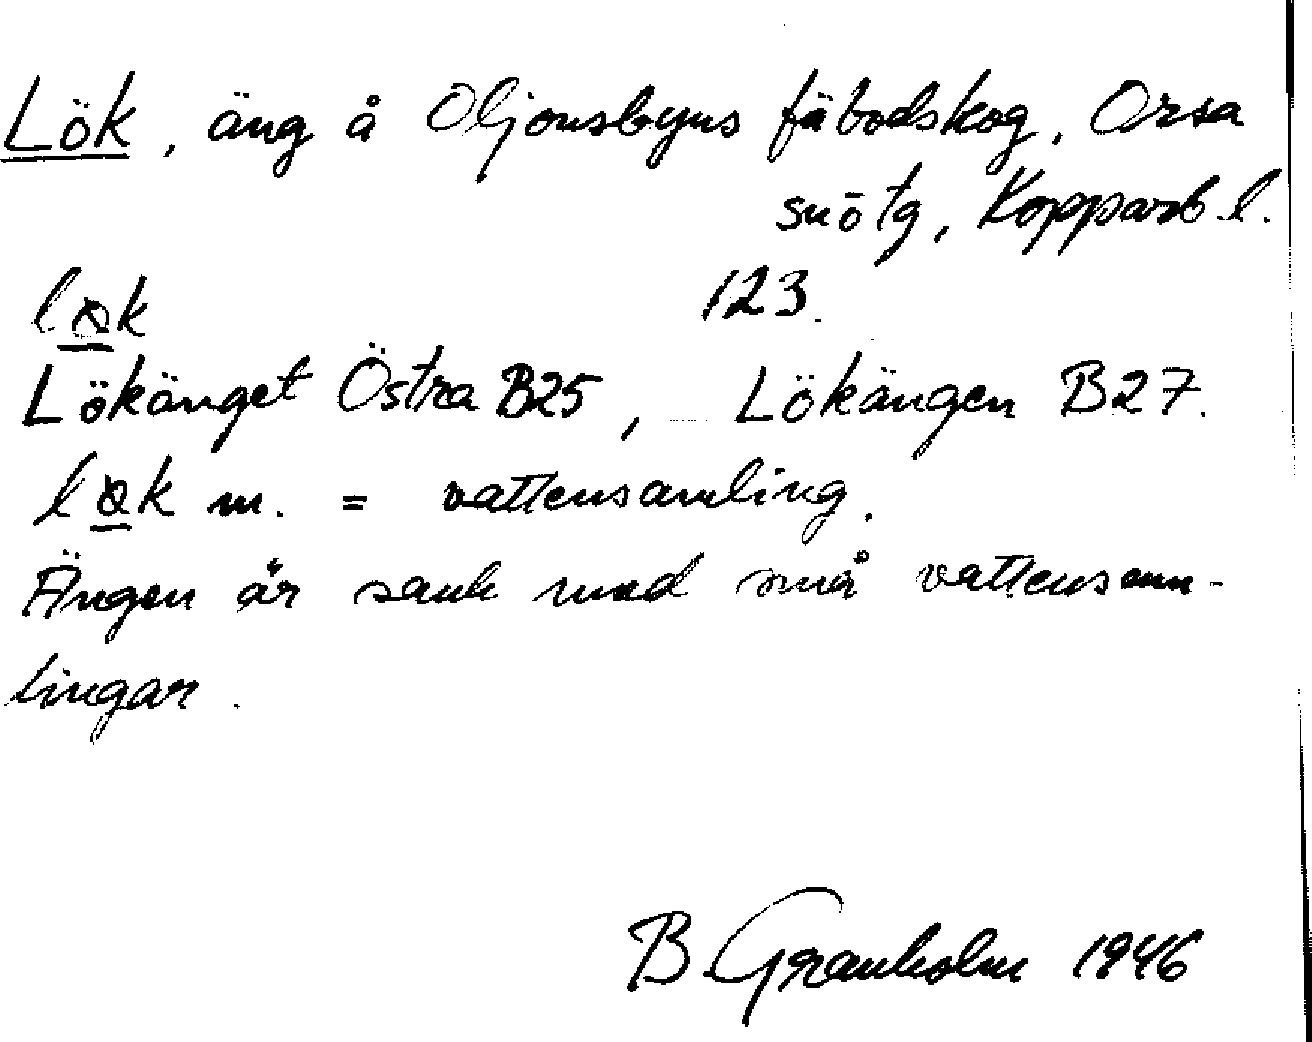 Lök, äng å Oljonsbyns fäbodskog, Orsa
snōtg, Kopparb. l.
løk 123.
Lökänget Östra B25, Lökängen B27.
løk m. = vattensamling.
Ängen är sank med små vattensam-
lingar.
B. Granholm 1946